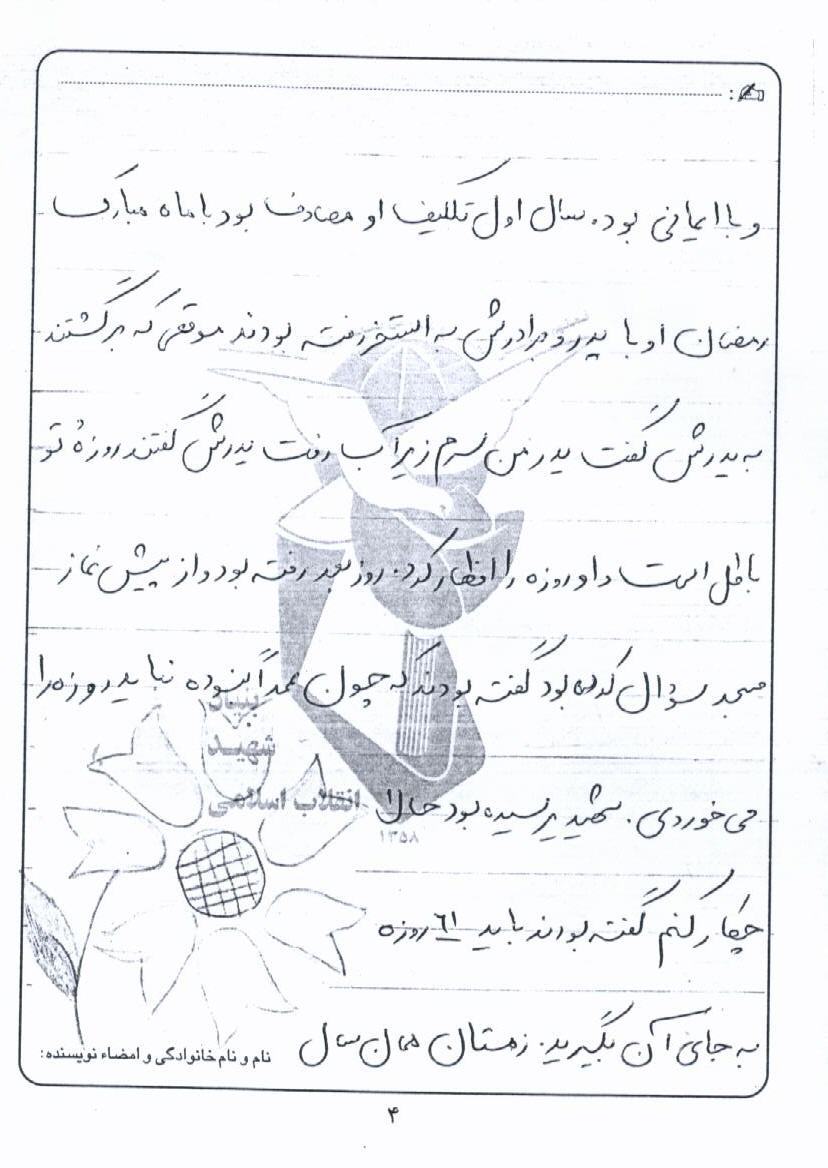 و با ایمانی بود. سال اول تکلیف او مصادف بود با ماه مبارک
رمضان او با پدر و برادرش به استخر رفته بودند موقعی که برگشتند
به پدرش گفت پدر من سرم زیر آب رفت پدرش گفتند روزهٔ تو
باطل است و او روزه را افطار کرد. روز بعد رفته بود و از پیش نماز
مسجد سؤال کرده بود گفته بودند که چون عمداً نبوده نباید روزه را
می خوردی. شهید پرسیده بود حالا
چکار کنم گفته بودند باید ۶۱ روزه
به جای آن بگیرید. زمستان همان سال
بنیاد
شهید
انقلاب اسلامی
۱۳۵۸
نام و نام خانوادگی و امضاء نویسنده:
۴